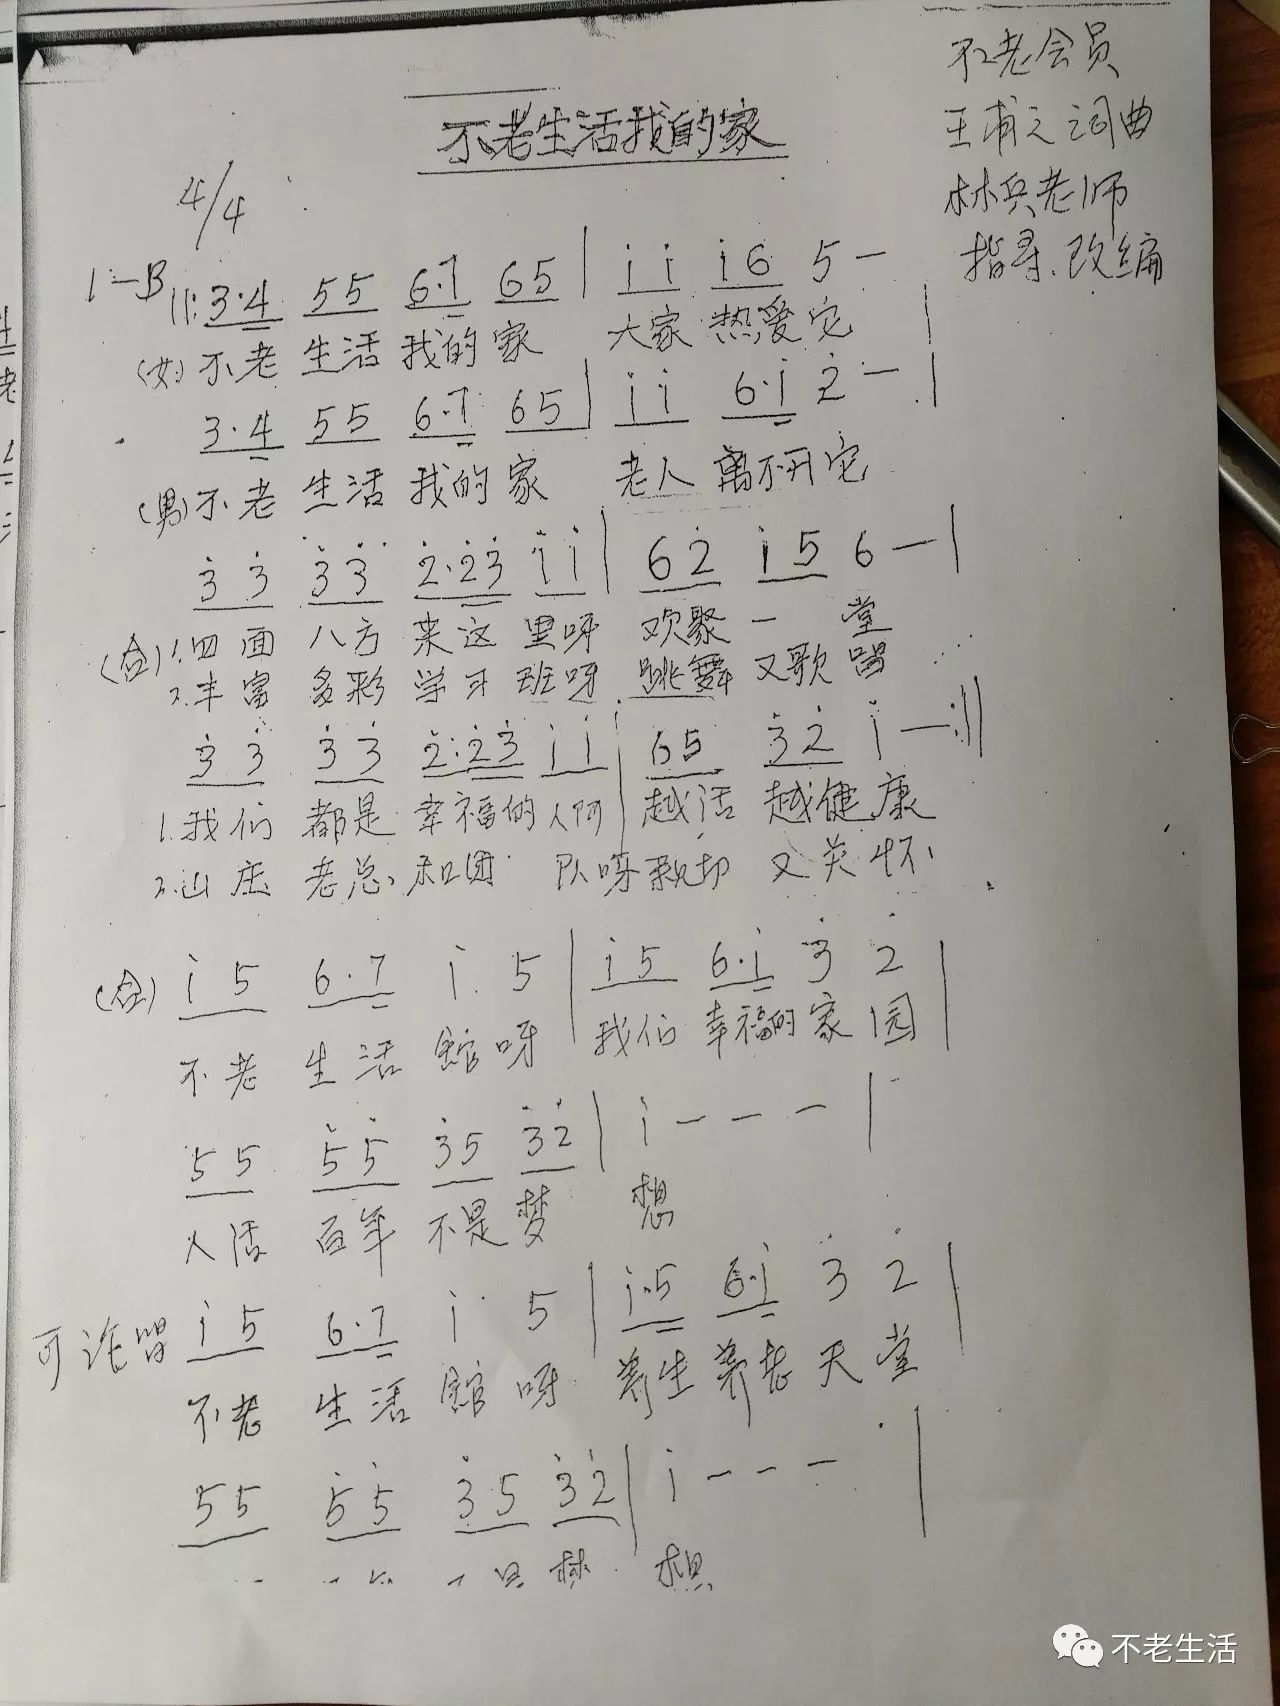 不老会员
王甫之词曲
林兵老师
指导、改编
不老生活我的家
4/4
1=B ||: 3·4 55 6·7 65 | i i i6 5 — |
(女) 不老 生活 我的 家 大家 热爱它
3·4 55 6·7 65 | i i 6·i 2̇ — |
(男) 不老 生活 我的 家 老人 离不开它
3̇ 3̇ 3̇ 3̇ 2̇·2̇3̇ i i | 6 2̇ i 5 6 — |
(合) 1.四面 八方 来这 里呀 欢聚 一 堂
2.丰富 多彩 学习 班呀 跳舞 又歌唱
3̇ 3̇ 3̇ 3̇ 2̇·2̇3̇ i i | 65 3̇2̇ i — :||
1.我们 都是 幸福的 人阿 越活 越健康
2.山庄 老总 和团 队呀 亲切 又关怀
(合) i 5 6·7 i 5 | i 5 6·i 3̇ 2̇ |
不老 生活 馆呀 我们 幸福的 家园
55 5̇5̇ 3̇5 3̇2̇ | i — — — |
人活 百年 不是 梦 想
i 5 6·7 i 5 | i·5 6·i 3̇ 2̇ |
不老 生活 馆呀 养生 养老 天堂
55 5̇5̇ 3̇5 3̇2̇ | i — — — |
想
不老生活